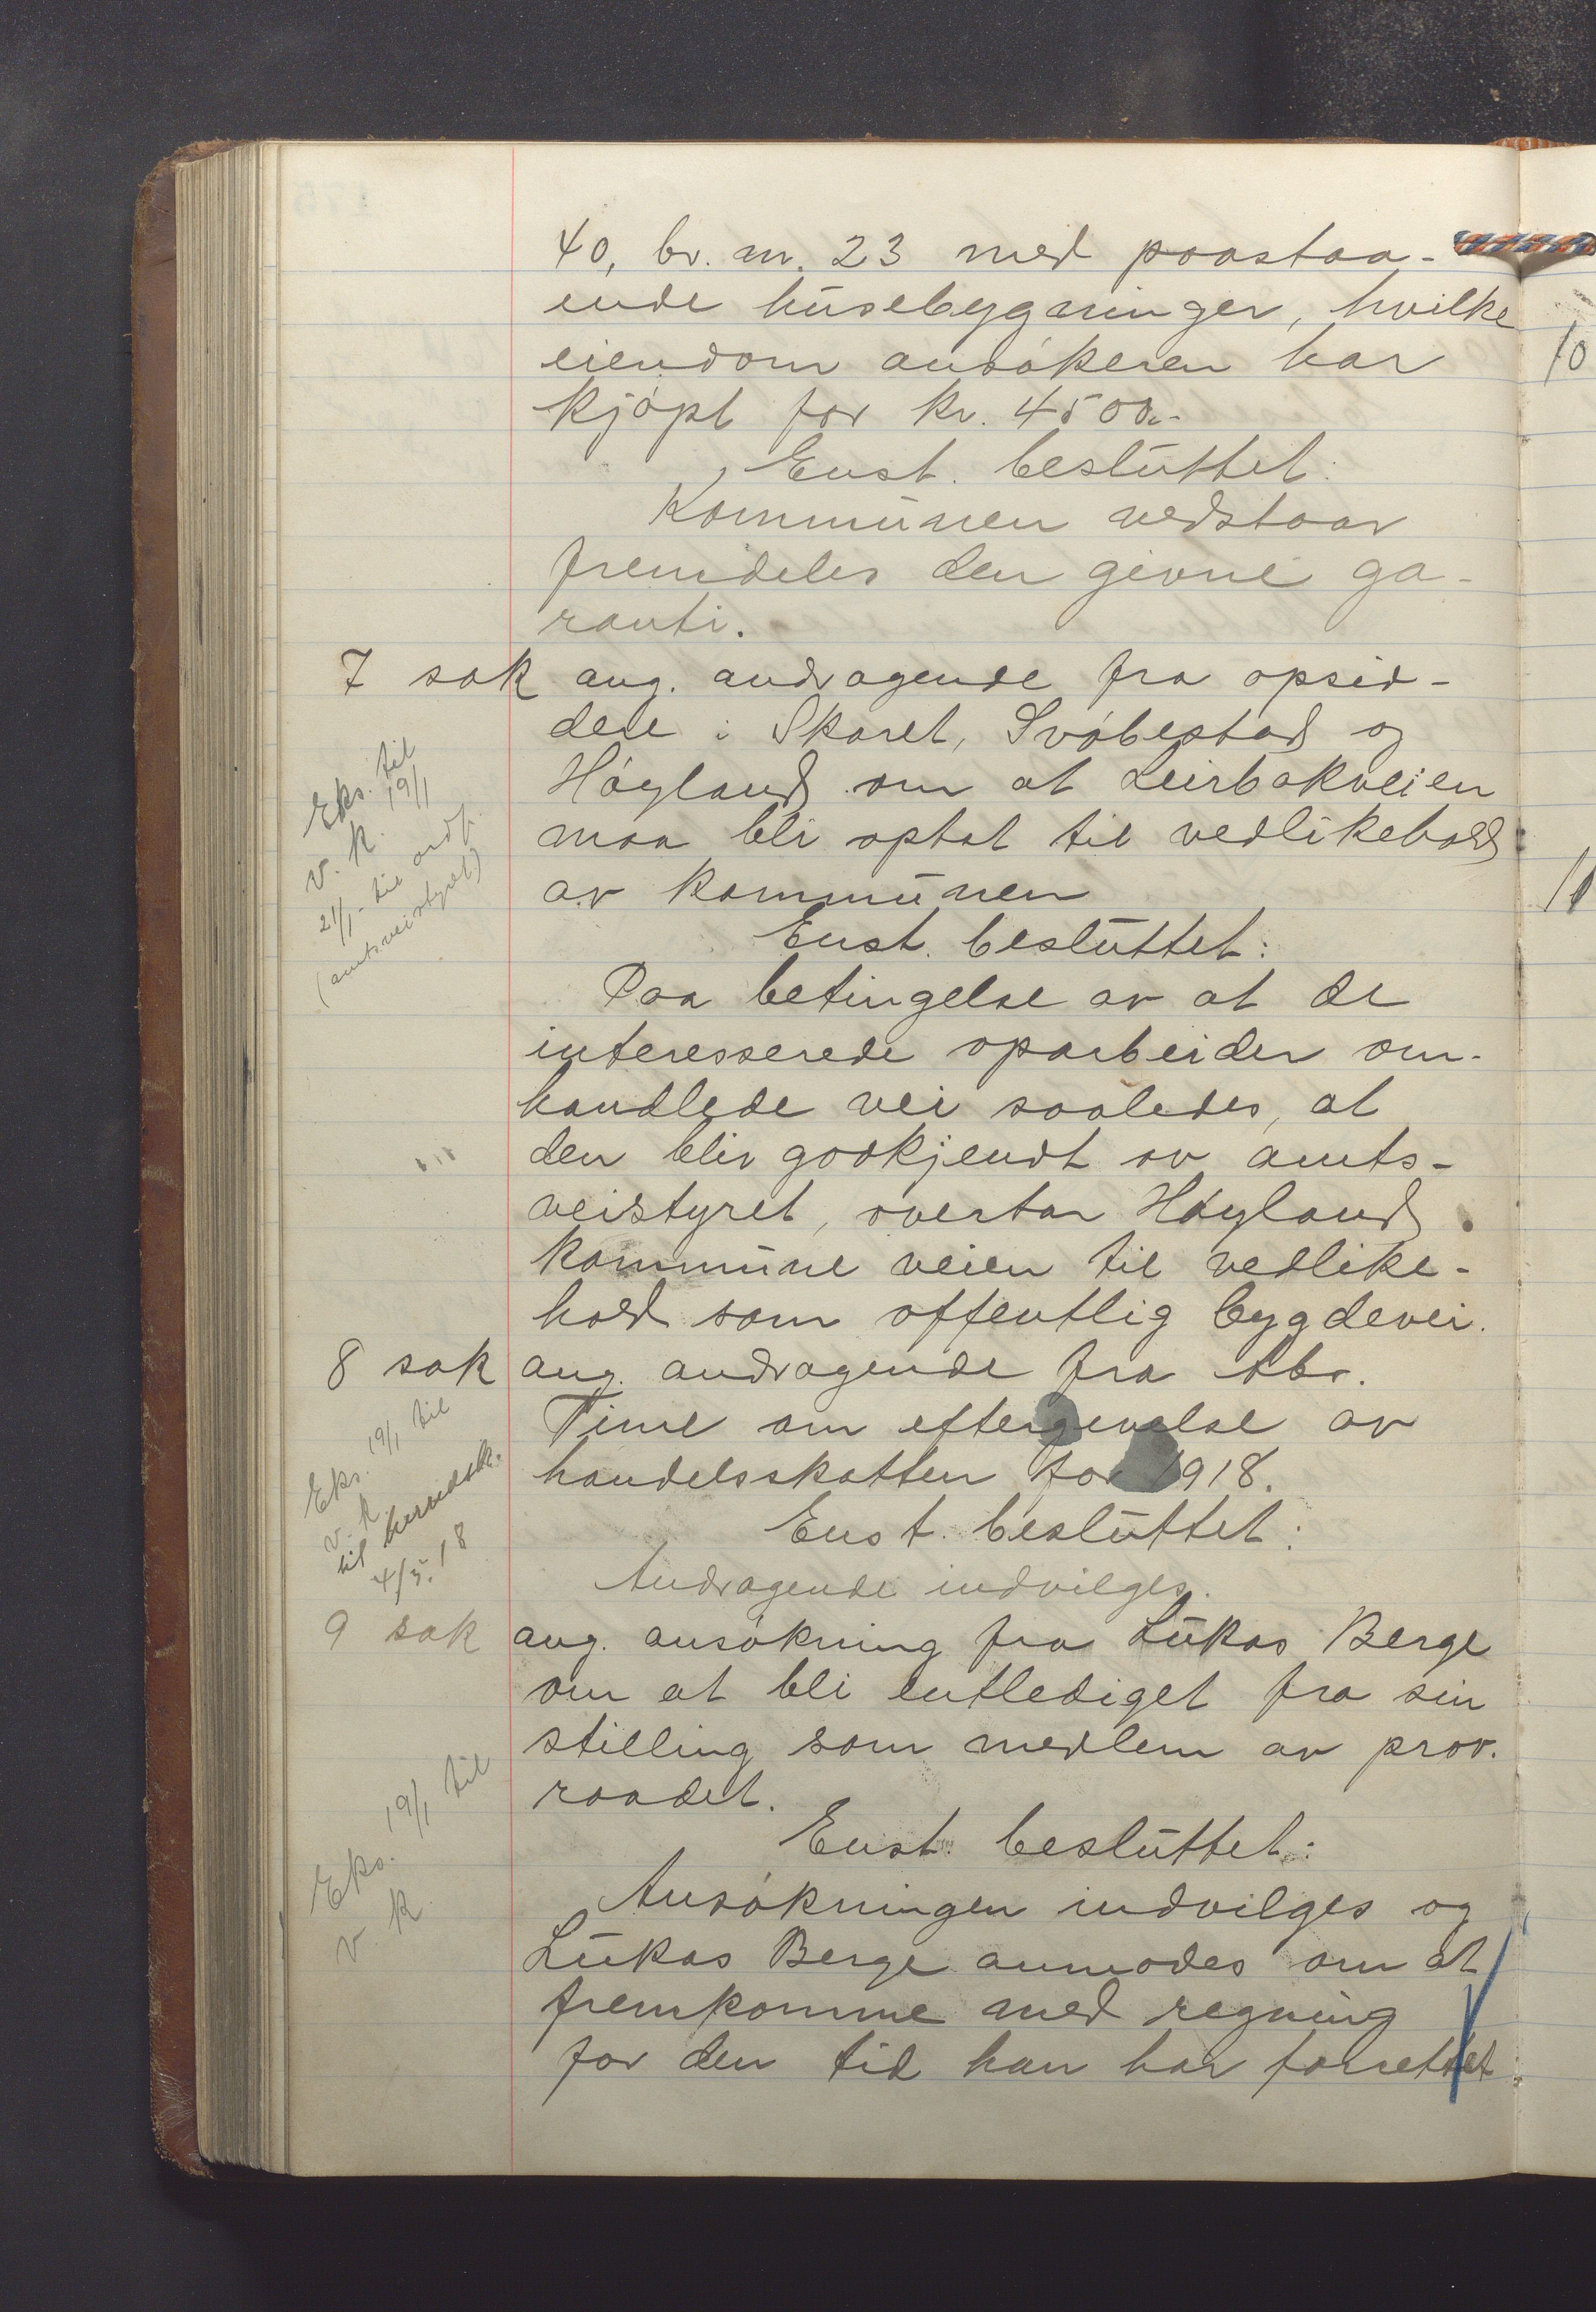 40, br. nr. 23 med paastaa-
ende husebygninger, hvilke
eiendom ansökeren har
kjöpt for kr. 4500.-
Enst. besluttet:
Kommunen vedstaar
fremdeles den givne ga-
ranti.
7 sak ang. andragende fra opsid-
dere i Skaret, Svöbestad og
Höyland om at Leirbakveien
maa bli optat til vedlikehold
av kommunen
Eks. til
v. k. 19/1
21/1 - til ordf.
(amtsveistyret)
Enst. besluttet:
Paa betingelse av at de
interesserede oparbeider om-
handlede vei saaledes, at
den blir godkjendt av amts-
veistyret, overtar Höyland
kommune veien til vedlike-
hold som offentlig bygdevei.
8 sak ang. andragende fra Abr.
Time om eftergivelse av
handelsskatten for 1918.
Eks. 19/1 til
v. k.
til herredsk.
4/5.18
Enst. besluttet:
Andragende indvilges.
9 sak ang. ansökning fra Lukas Berge
om at bli entlediget fra sin
stilling som medlem av prov.
raadet.
Eks. 19/1 til
v. k.
Enst. besluttet:
Ansökningen indvilges og
Lukas Berge anmodes om at
fremkomme med regning
for den tid han har forrettet
10
11